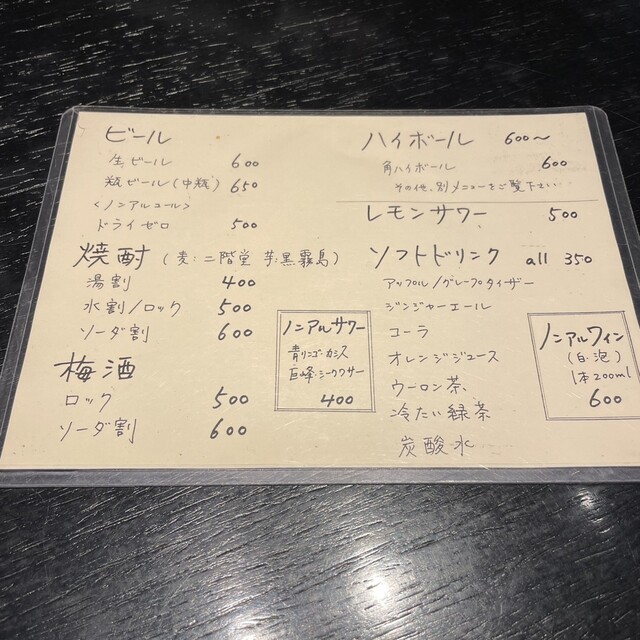 ビール
生ビール 600
瓶ビール(中瓶) 650
<ノンアルコール>
ドライゼロ 500
焼酎 (麦:二階堂 芋:黒霧島)
湯割 400
水割/ロック 500
ソーダ割 600
梅酒
ロック 500
ソーダ割 600
ノンアルサワー
青りんご・カシス
巨峰・シークワサー
400
ハイボール 600〜
角ハイボール 600
その他、別メニューをご覧下さい
レモンサワー 500
ソフトドリンク all 350
アップル/グレープタイザー
ジンジャーエール
コーラ
オレンジジュース
ウーロン茶、
冷たい緑茶
炭酸水
ノンアルワイン
(白・泡)
1本200ml
600